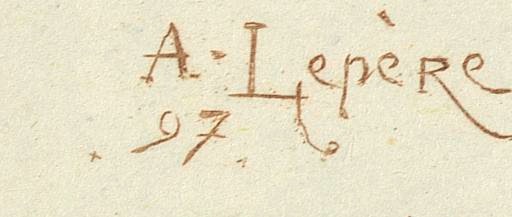 A. Lepère
97.